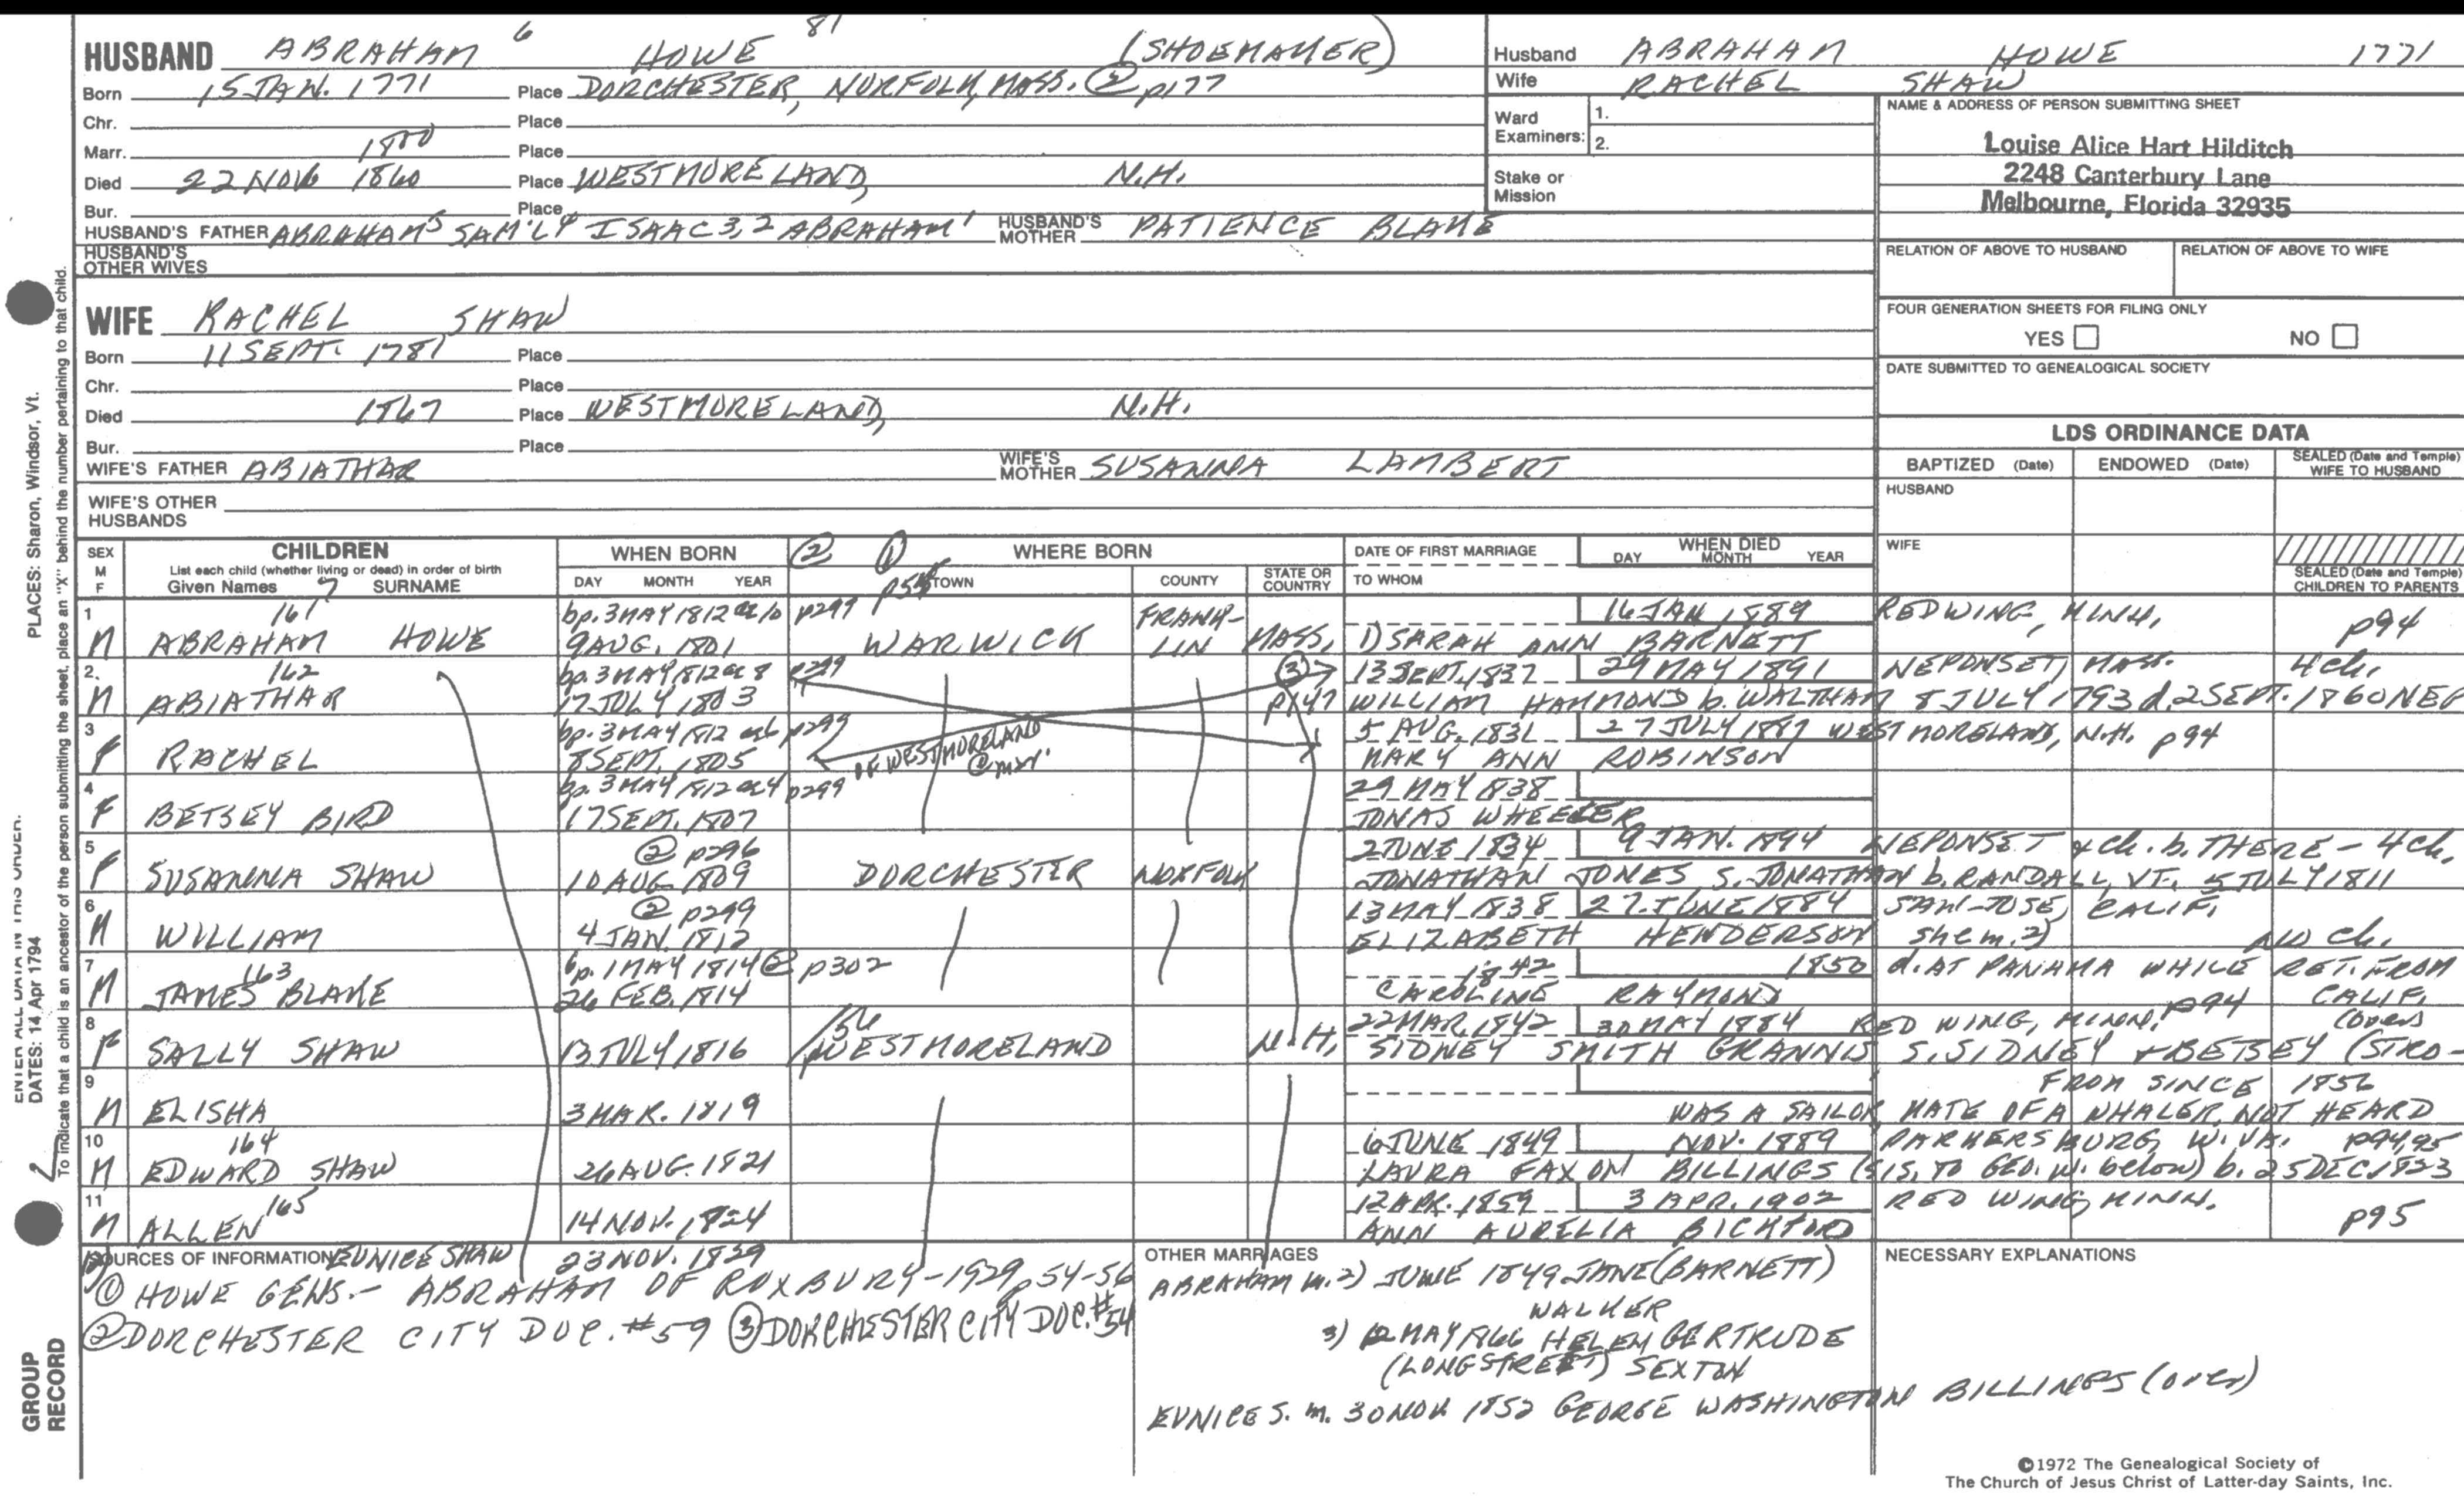 HUSBAND ABRAHAM 6 HOWE 81 (SHOEMAKER)
Born 15 JAN. 1771 Place DORCHESTER, NORFOLK, MASS. ② p177
Chr. Place
Marr. 1800 Place
Died 22 NOV 1860 Place WESTMORELAND, N.H.
Bur. Place
HUSBAND'S FATHER ABRAHAM5 SAM'L4 ISAAC3,2 ABRAHAM1 HUSBAND'S MOTHER PATIENCE BLAKE
HUSBAND'S OTHER WIVES
Husband ABRAHAM HOWE 1771
Wife RACHEL SHAW
Ward Examiners: 1.
2.
Stake or Mission
NAME & ADDRESS OF PERSON SUBMITTING SHEET
Louise Alice Hart Hilditch
2248 Canterbury Lane
Melbourne, Florida 32935
RELATION OF ABOVE TO HUSBAND RELATION OF ABOVE TO WIFE
FOUR GENERATION SHEETS FOR FILING ONLY
YES NO
DATE SUBMITTED TO GENEALOGICAL SOCIETY
WIFE RACHEL SHAW
Born 11 SEPT. 1781 Place
Chr. Place
Died 1867 Place WESTMORELAND, N.H.
Bur. Place
WIFE'S FATHER ABIATHAR WIFE'S MOTHER SUSANNA LAMBERT
WIFE'S OTHER HUSBANDS
LDS ORDINANCE DATA
BAPTIZED (Date) ENDOWED (Date) SEALED (Date and Temple) WIFE TO HUSBAND
HUSBAND
WIFE
SEALED (Date and Temple) CHILDREN TO PARENTS
SEX M F
CHILDREN
List each child (whether living or dead) in order of birth
Given Names 7 SURNAME
WHEN BORN
DAY MONTH YEAR
② ① WHERE BORN
p55 TOWN COUNTY STATE OR COUNTRY
DATE OF FIRST MARRIAGE
TO WHOM
WHEN DIED
DAY MONTH YEAR
1 161 bp. 3 MAY 1812 ae 10 p299 FRANK- 16 JAN 1889 REDWING, MINN.
M ABRAHAM HOWE 9 AUG. 1801 WARWICK LIN MASS, 1) SARAH ANN BARNETT p94
2. 162 bp. 3 MAY 1812 ae 8 p299 ③ 13 SEPT. 1837 29 MAY 1891 NEPONSET, MASS. 4 ch.
M ABIATHAR 17 JULY 1803 p147 WILLIAM HAMMOND b. WALTHAM 8 JULY 1793 d. 2 SEPT. 1860 NEP
3 bp. 3 MAY 1812 ae 6 p299 5 AUG. 1831 27 JULY 1887 WESTMORELAND, N.H. p94
F RACHEL 8 SEPT. 1805 OF WESTMORELAND @ mar. MARY ANN ROBINSON
4 bp. 3 MAY 1812 ae 4 p299 29 MAY 1838
F BETSEY BIRD 17 SEPT. 1807 JONAS WHEELER
5 ② p296 2 JUNE 1834 9 JAN. 1894 NEPONSET & ch. b. THERE - 4 ch.
F SUSANNA SHAW 10 AUG 1809 DORCHESTER NORFOLK JONATHAN JONES S. JONATHAN b. RANDALL, VT. 5 JULY 1811
6 ② p299 13 MAY 1838 27 JUNE 1884 SAN JOSE, CALIF.
M WILLIAM 4 JAN. 1812 ELIZABETH HENDERSON she m. 2) NO ch.
7 163 bp. 1 MAY 1814 ② p302 1842 1850 d. AT PANAMA WHILE RET. FROM
M JAMES BLAKE 26 FEB. 1814 CAROLINE RAYMOND p94 CALIF.
8 156 22 MAR. 1842 30 MAY 1884 RED WING, MINN. (over)
F SALLY SHAW 13 JULY 1816 WESTMORELAND N.H. SIDNEY SMITH GRANNIS S. SIDNEY & BETSEY (STRO-
9 FROM SINCE 1856
M ELISHA 3 MAR. 1819 WAS A SAILOR MATE OF A WHALER, NOT HEARD
10 164 6 JUNE 1849 NOV. 1889 PARKERSBURG, W. VA. p94,95
M EDWARD SHAW 26 AUG. 1821 LAURA FAXON BILLINGS (SIS. TO GEO. W. below) b. 25 DEC 1823
11 165 12 APR. 1859 3 APR. 1902 RED WING, MINN.
M ALLEN 14 NOV. 1824 ANN AURELIA BICKFORD p95
SOURCES OF INFORMATION EUNICE SHAW 23 NOV. 1829
① HOWE GENS. - ABRAHAM OF ROXBURY - 1929 p54-56
② DORCHESTER CITY DOC. #59 ③ DORCHESTER CITY DOC. #54
OTHER MARRIAGES
ABRAHAM m. 2) JUNE 1849 JANE (BARNETT)
WALKER
3) 12 MAY 1866 HELEN GERTRUDE
(LONGSTREET) SEXTON
EUNICE S. m. 30 NOV. 1852 GEORGE WASHINGTON BILLINGS (over)
NECESSARY EXPLANATIONS
©1972 The Genealogical Society of
The Church of Jesus Christ of Latter-day Saints, Inc.
PLACES: Sharon, Windsor, Vt.
ENTER ALL DATA IN THIS ORDER:
DATES: 14 Apr 1794
To indicate that a child is an ancestor of the person submitting the sheet, place an "X" behind the number pertaining to that child.
GROUP
RECORD